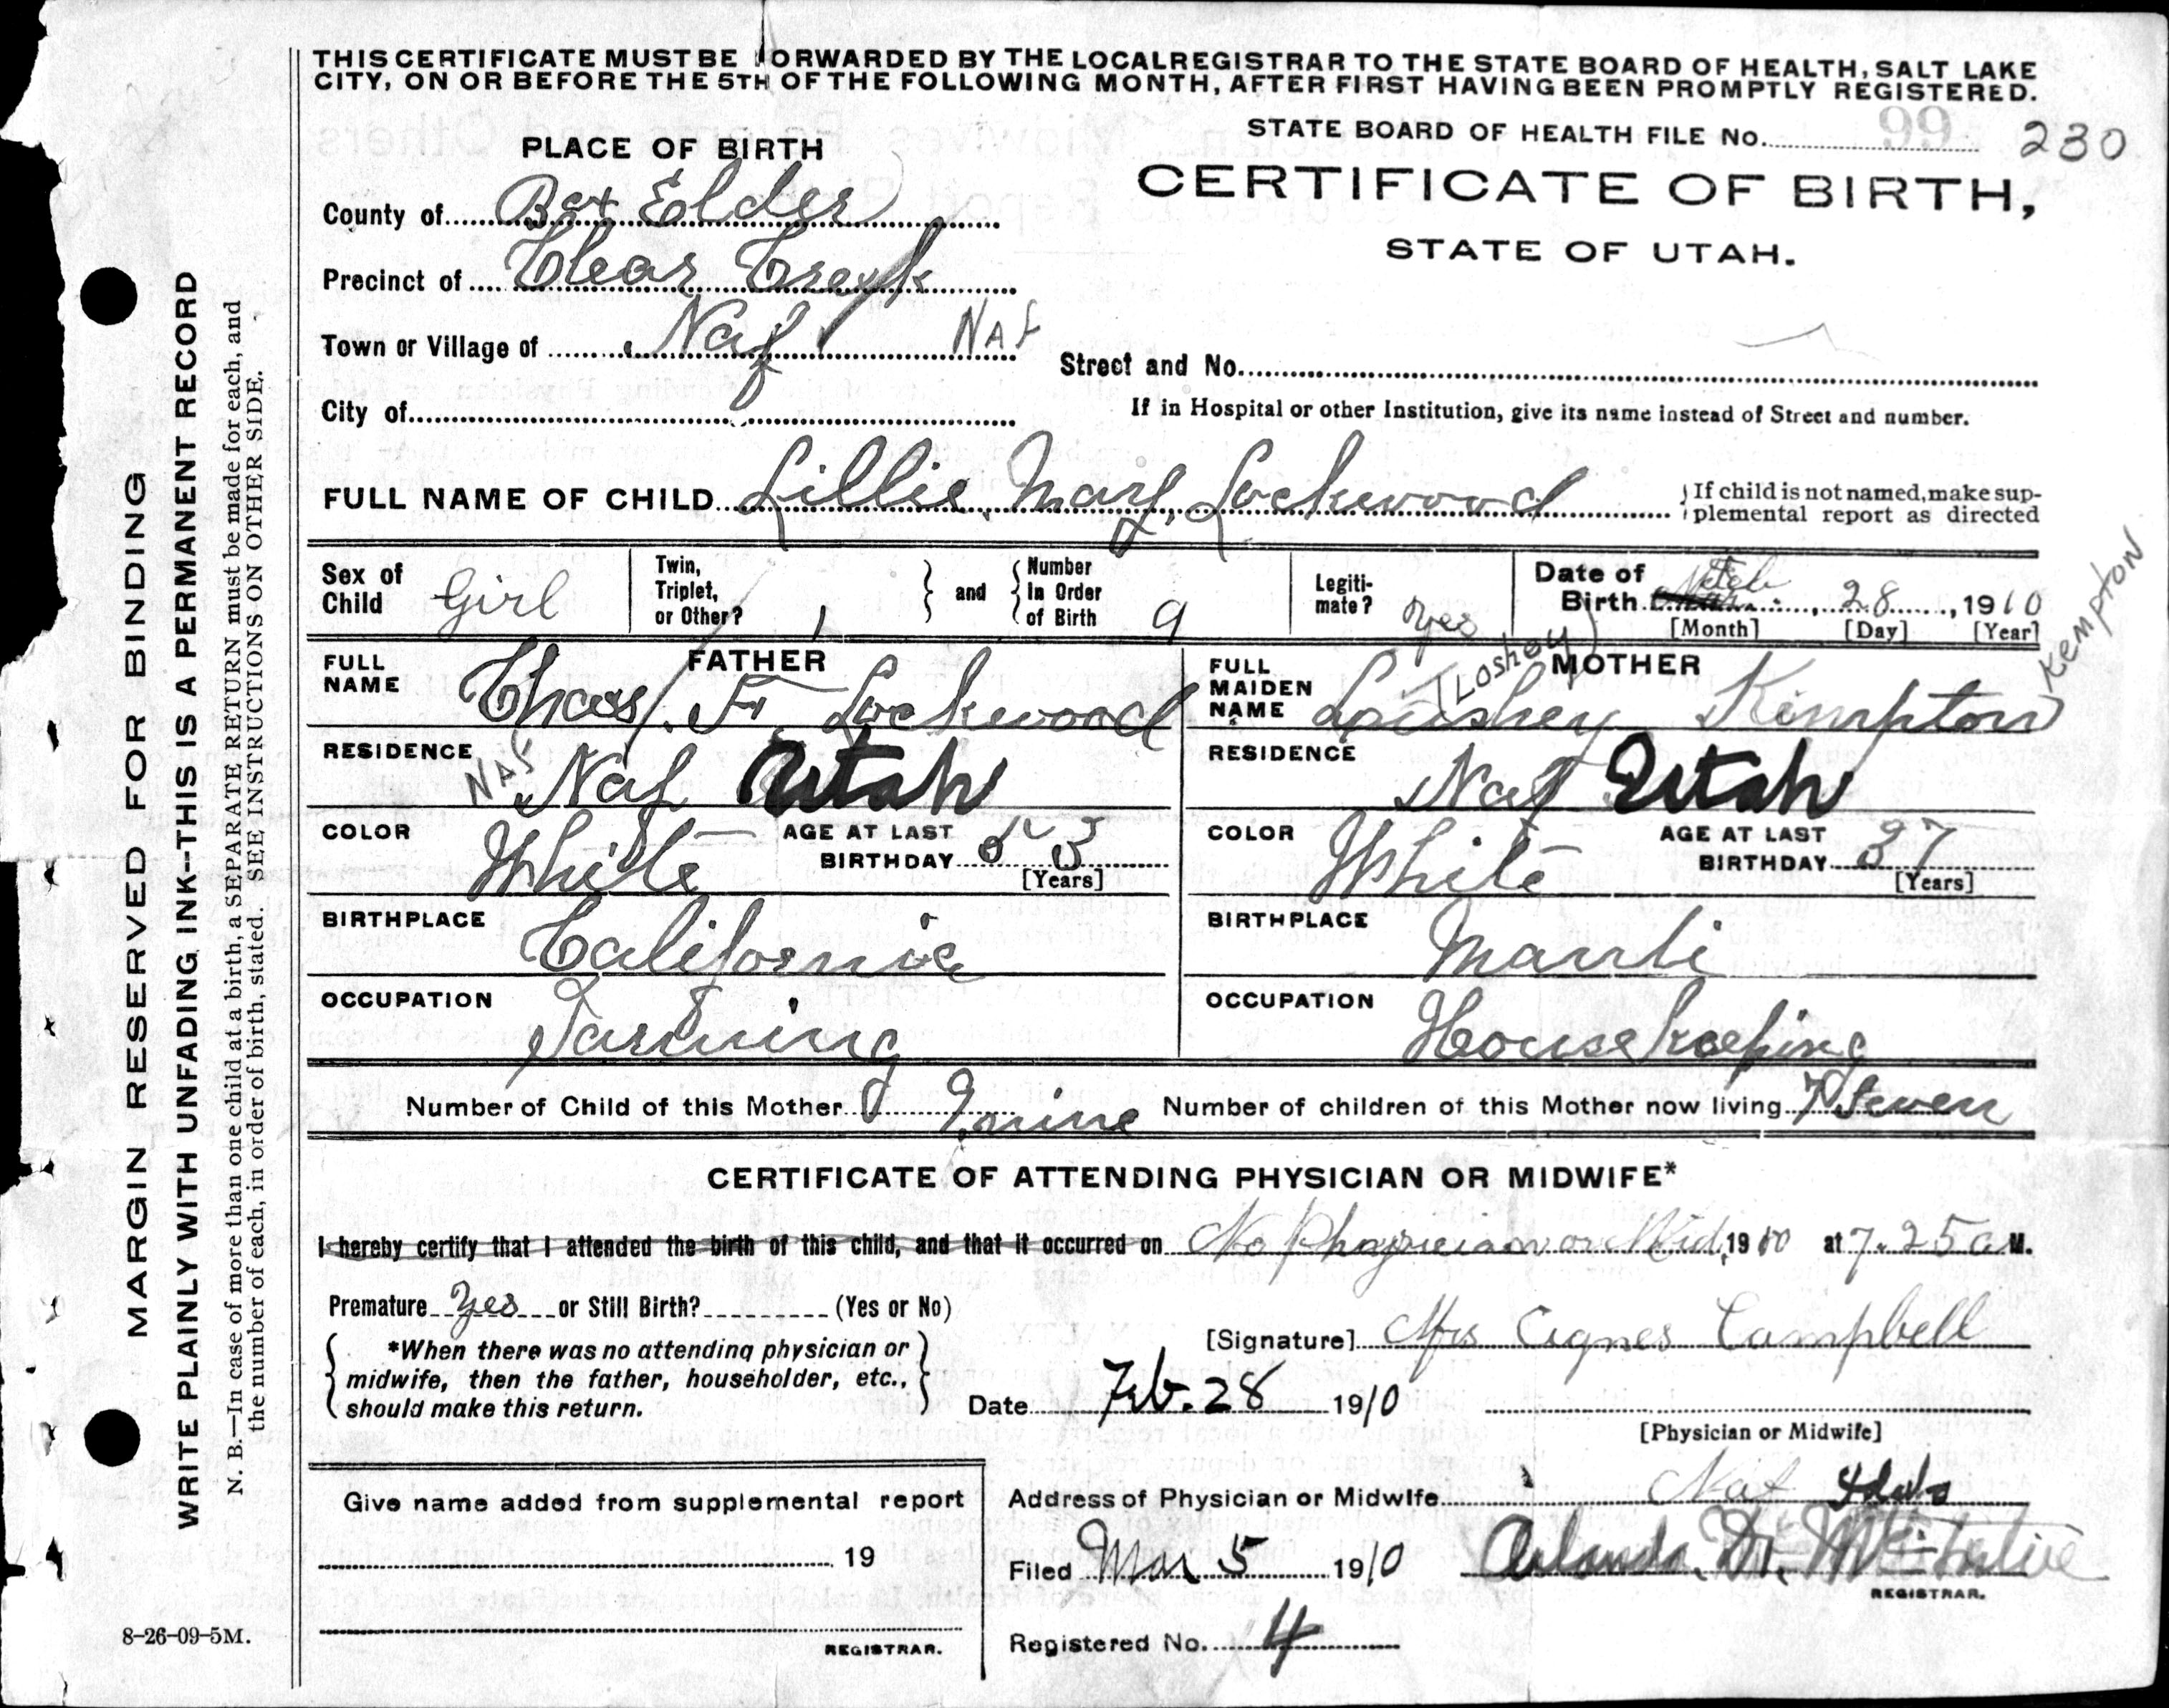 THIS CERTIFICATE MUST BE FORWARDED BY THE LOCAL REGISTRAR TO THE STATE BOARD OF HEALTH, SALT LAKE
CITY, ON OR BEFORE THE 5TH OF THE FOLLOWING MONTH, AFTER FIRST HAVING BEEN PROMPTLY REGISTERED.
STATE BOARD OF HEALTH FILE No. 99 230
PLACE OF BIRTH
CERTIFICATE OF BIRTH,
STATE OF UTAH.
County of Box Elder
Precinct of Clear Creek
Town or Village of Naf NAF
Street and No.
City of
If in Hospital or other Institution, give its name instead of Street and number.
FULL NAME OF CHILD Lillie Mary Lockwood
If child is not named, make sup-
plemental report as directed
Sex of Child Girl
Twin, Triplet, or Other? 1
and Number In Order of Birth 9
Legiti-mate? Yes
Date of Birth Feb 28, 1910
[Month] [Day] [Year]
FATHER
FULL NAME Chas. F. Lockwood
RESIDENCE NAF Naf Utah
COLOR White
AGE AT LAST BIRTHDAY 53
[Years]
BIRTHPLACE California
OCCUPATION Farming
MOTHER
FULL MAIDEN NAME Loushey (Loshey) Kimpton Kempton
RESIDENCE Naf Utah
COLOR White
AGE AT LAST BIRTHDAY 37
[Years]
BIRTHPLACE Manti
OCCUPATION House keeping
Number of Child of this Mother 9 nine
Number of children of this Mother now living 7 Seven
CERTIFICATE OF ATTENDING PHYSICIAN OR MIDWIFE*
I hereby certify that I attended the birth of this child, and that it occurred on No Physician or Mid, 1910 at 7.25 a M.
Premature Yes or Still Birth? (Yes or No)
*When there was no attending physician or
midwife, then the father, householder, etc.,
should make this return.
[Signature] Mrs Agnes Campbell
Date Feb. 28 1910
[Physician or Midwife]
Give name added from supplemental report
19
REGISTRAR.
Address of Physician or Midwife Naf Idaho
Filed Mar 5 1910
REGISTRAR.
Registered No. 4
MARGIN RESERVED FOR BINDING
WRITE PLAINLY WITH UNFADING INK--THIS IS A PERMANENT RECORD
N. B.—In case of more than one child at a birth, a SEPARATE RETURN must be made for each, and
the number of each, in order of birth, stated. SEE INSTRUCTIONS ON OTHER SIDE.
8-26-09-5M.